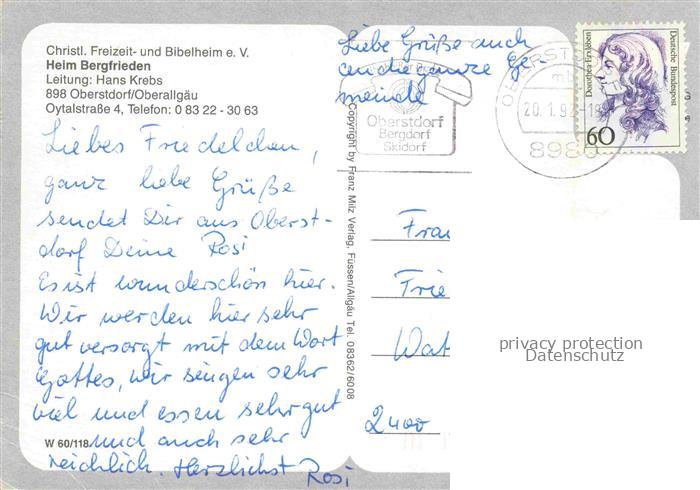 Christl. Freizeit- und Bibelheim e. V.
Heim Bergfrieden
Leitung: Hans Krebs
898 Oberstdorf/Oberallgäu
Oytalstraße 4, Telefon: 0 83 22 - 30 63
Liebes Friedelchen,
ganz liebe Grüße
sendet Dir aus Oberst-
dorf Deine Rosi
Es ist wunderschön hier.
Wir werden hier sehr
gut versorgt mit dem Wort
Gottes, wir singen sehr
viel und essen sehr gut
und auch sehr
reichlich. Herzlichst Rosi
W 60/118
Liebe Grüße auch
an die ganze Ge-
meinde
Copyright by Franz Milz Verlag, Füssen/Allgäu Tel. 08362/6008
Oberstdorf
Bergdorf
Skidorf
OBERST
mb
20.1.92-18
8980
Dorothea Erxleben
Deutsche Bundespost
60
Frau
Frie
Wat
2400
privacy protection
Datenschutz